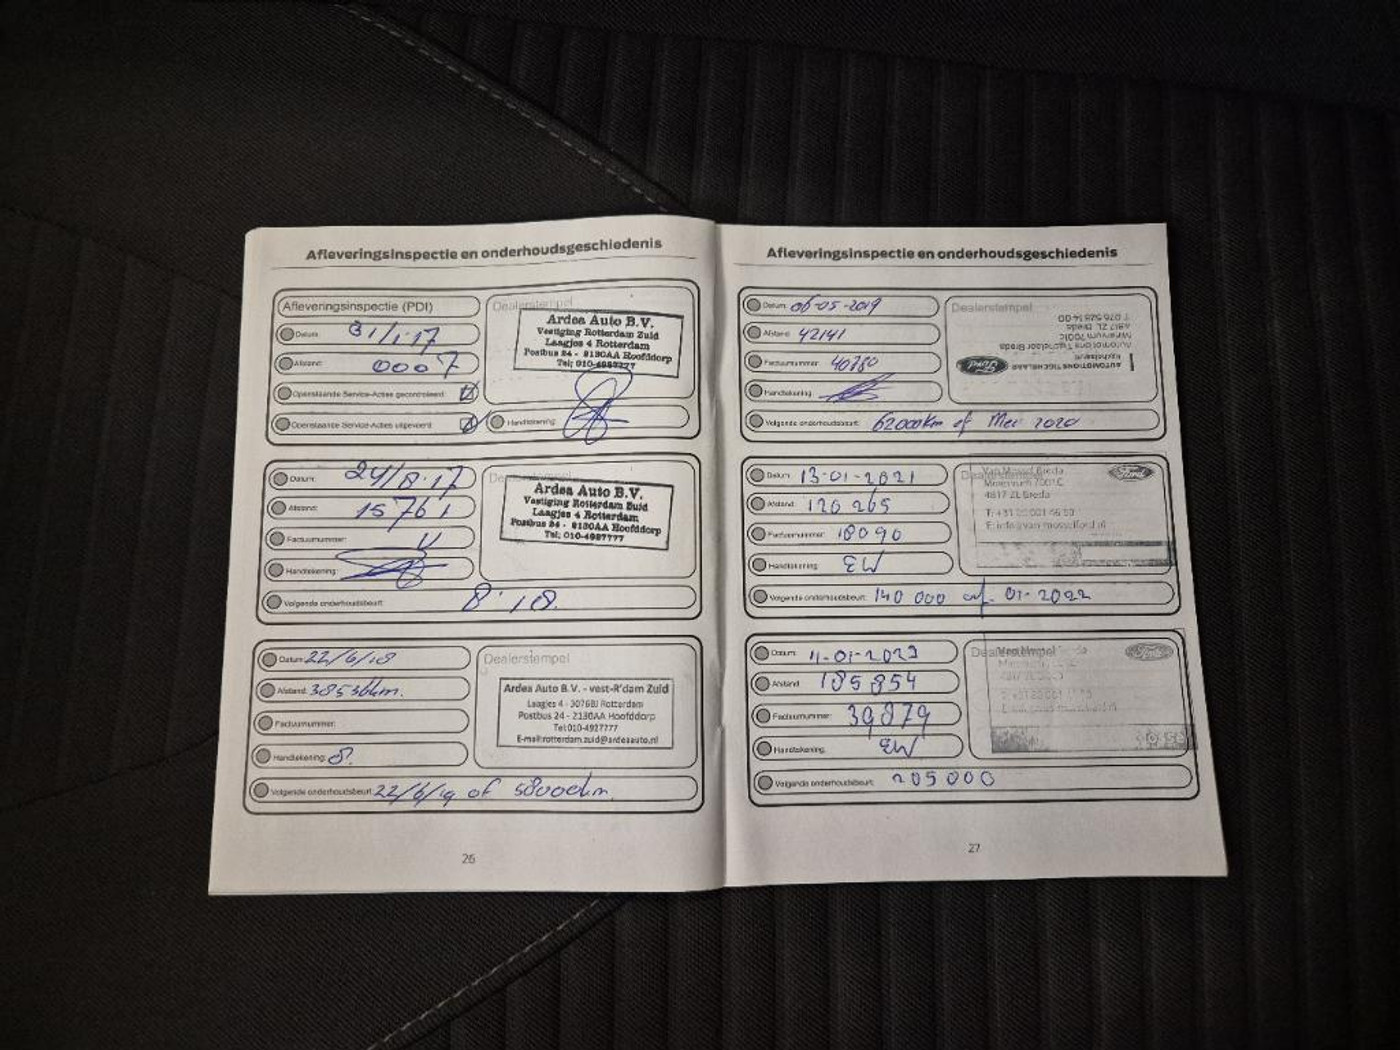 Afleveringsinspectie en onderhoudsgeschiedenis
Afleveringsinspectie (PDI)
Datum: 31/1·17
Afstand: 0007
Openstaande Service-Acties gecontroleerd:
Openstaande Service-Acties uitgevoerd:
Dealerstempel
Ardea Auto B.V.
Vestiging Rotterdam Zuid
Laagjes 4 Rotterdam
Postbus 24 - 2130AA Hoofddorp
Tel; 010-4987777
Handtekening:
Datum: 24/8·17
Afstand: 15761
Factuurnummer:
Handtekening:
Dealerstempel
Ardea Auto B.V.
Vestiging Rotterdam Zuid
Laagjes 4 Rotterdam
Postbus 24 - 2130AA Hoofddorp
Tel; 010-4987777
Volgende onderhoudsbeurt: 8·18.
Datum: 22/6/18
Afstand: 38536km.
Factuurnummer:
Handtekening:
Dealerstempel
Ardea Auto B.V. - vest-R'dam Zuid
Laagjes 4 - 3076BJ Rotterdam
Postbus 24 - 2130AA Hoofddorp
Tel:010-4927777
E-mail:rotterdam.zuid@ardeaauto.nl
Volgende onderhoudsbeurt: 22/6/19 of 58000km.
26
Afleveringsinspectie en onderhoudsgeschiedenis
Datum: 06-05-2019
Afstand: 42141
Factuurnummer: 40780
Handtekening:
Dealerstempel
AUTOMOTIONS TIGCHELAAR
Automotions Tigchelaar Breda
Minervum 7001c
4817 ZL Breda
Ford
Volgende onderhoudsbeurt: 62000km of Mei 2020
Datum: 13-01-2021
Afstand: 120 265
Factuurnummer: 18090
Handtekening: EW
Dealerstempel
Van Mossel Breda
Minervum 7001C
4817 ZL Breda
Ford
Volgende onderhoudsbeurt: 140 000 of 01-2022
Datum:
Afstand: 185 854
Factuurnummer: 39879
Handtekening: EW
Dealerstempel
Ford
Volgende onderhoudsbeurt: 205000
27